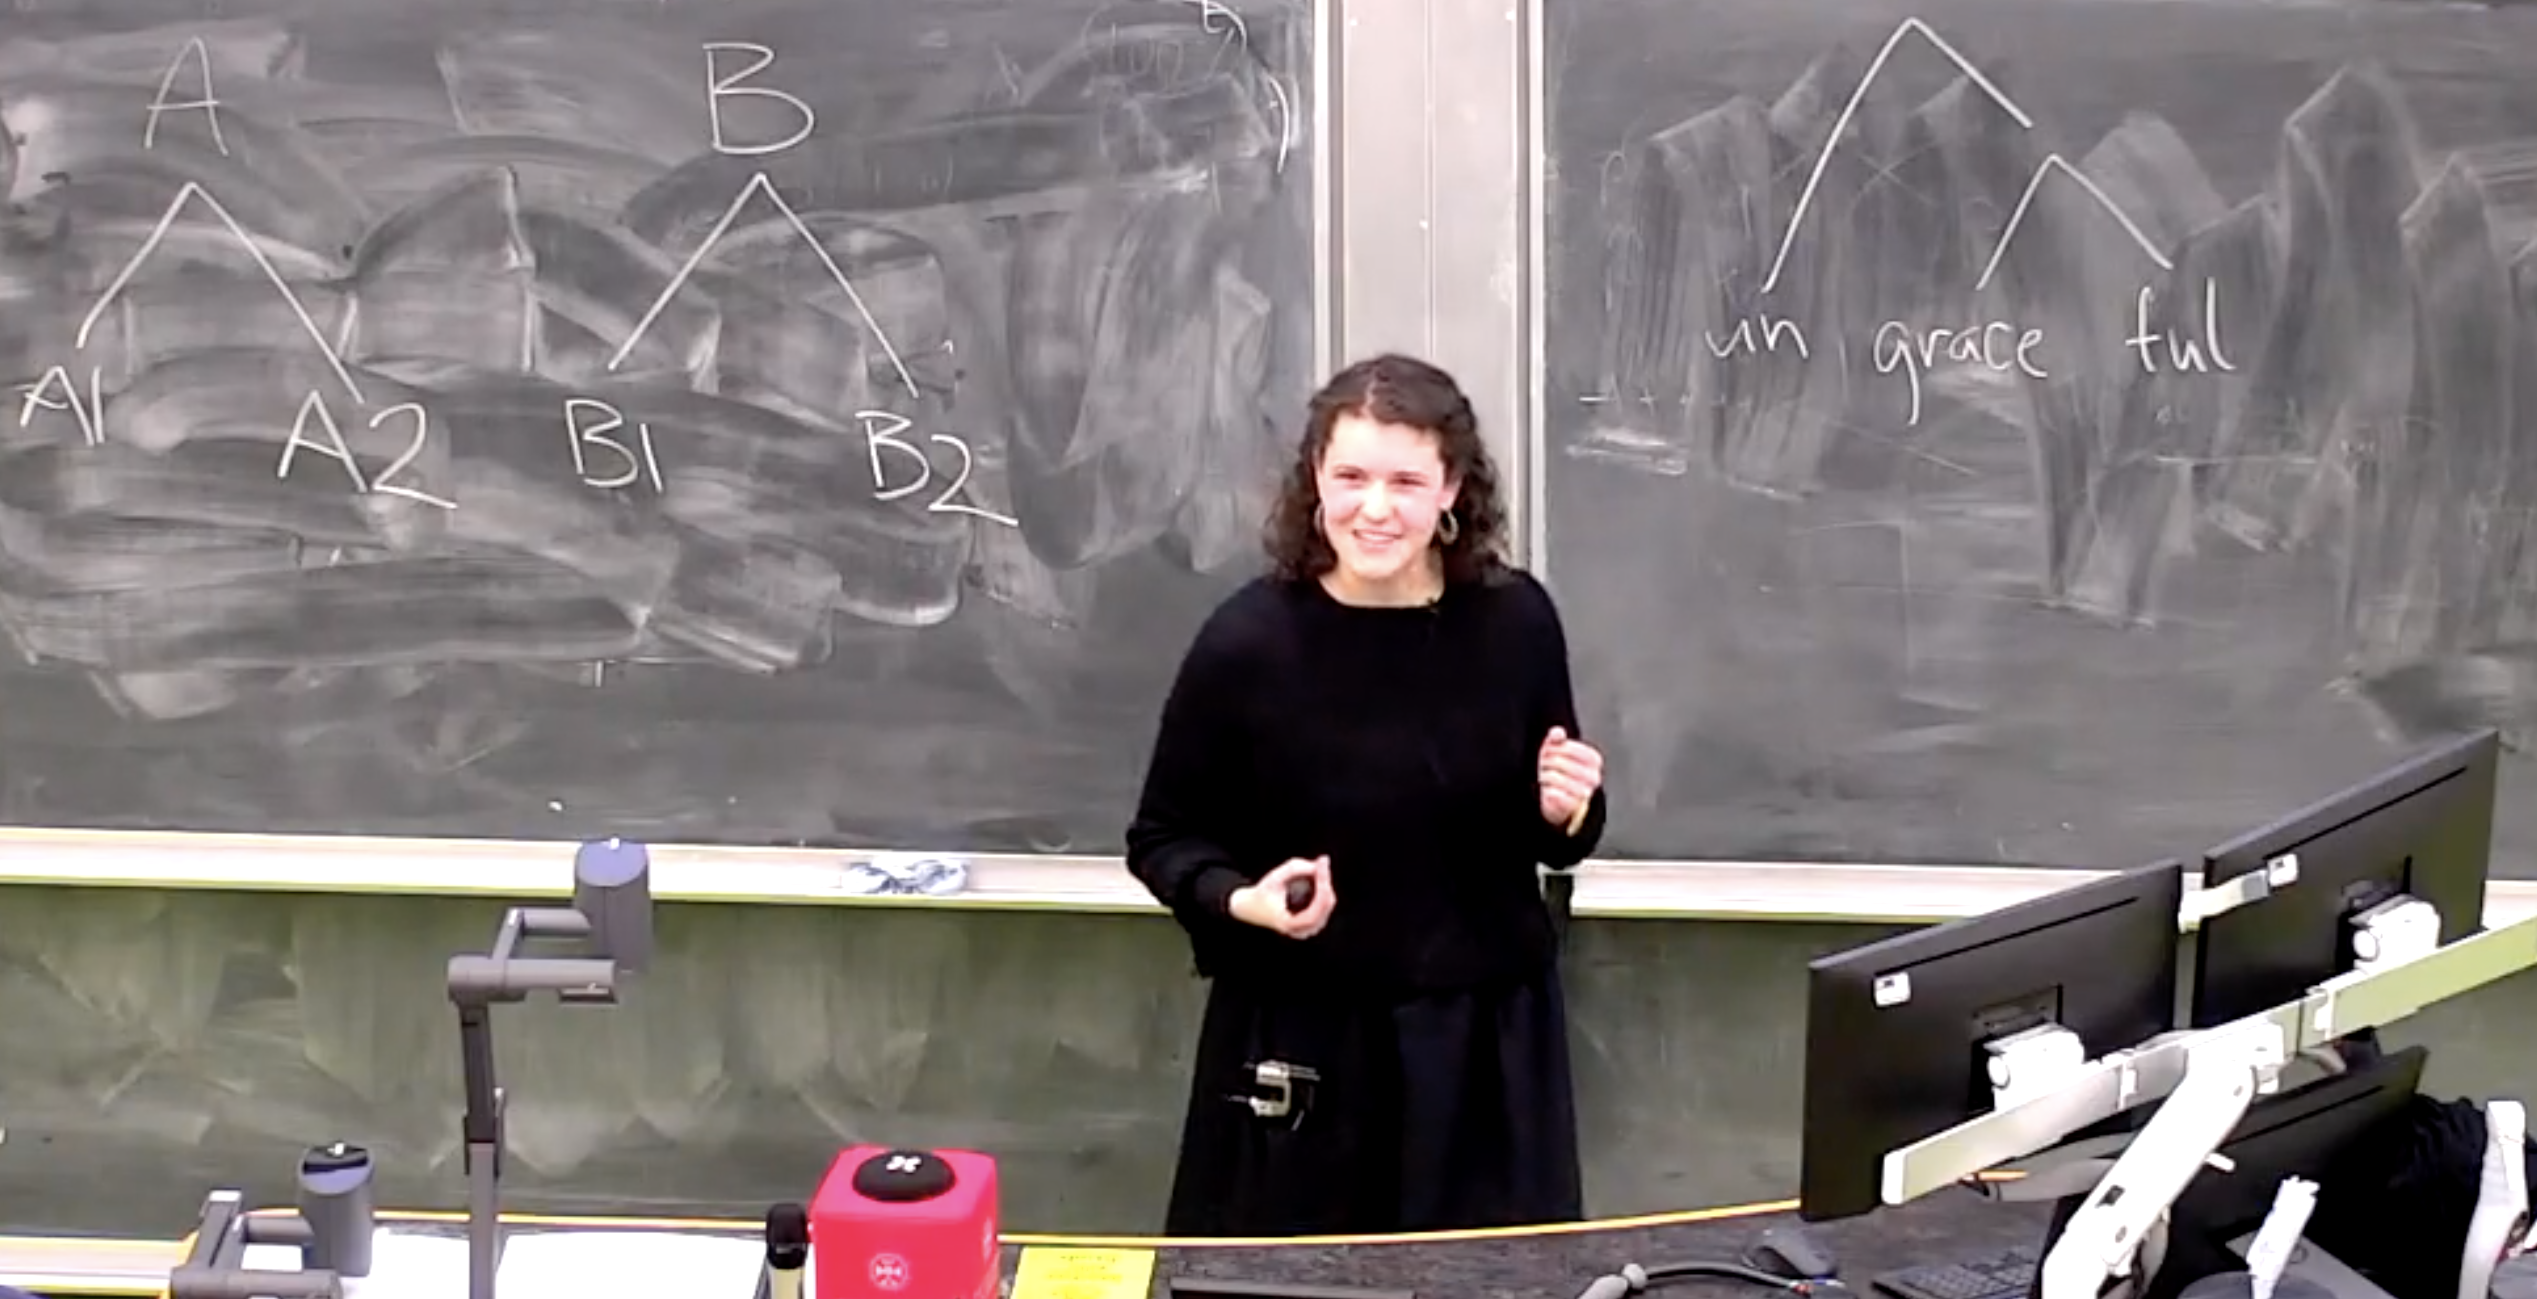 A B
A1 A2 B1 B2
un grace ful